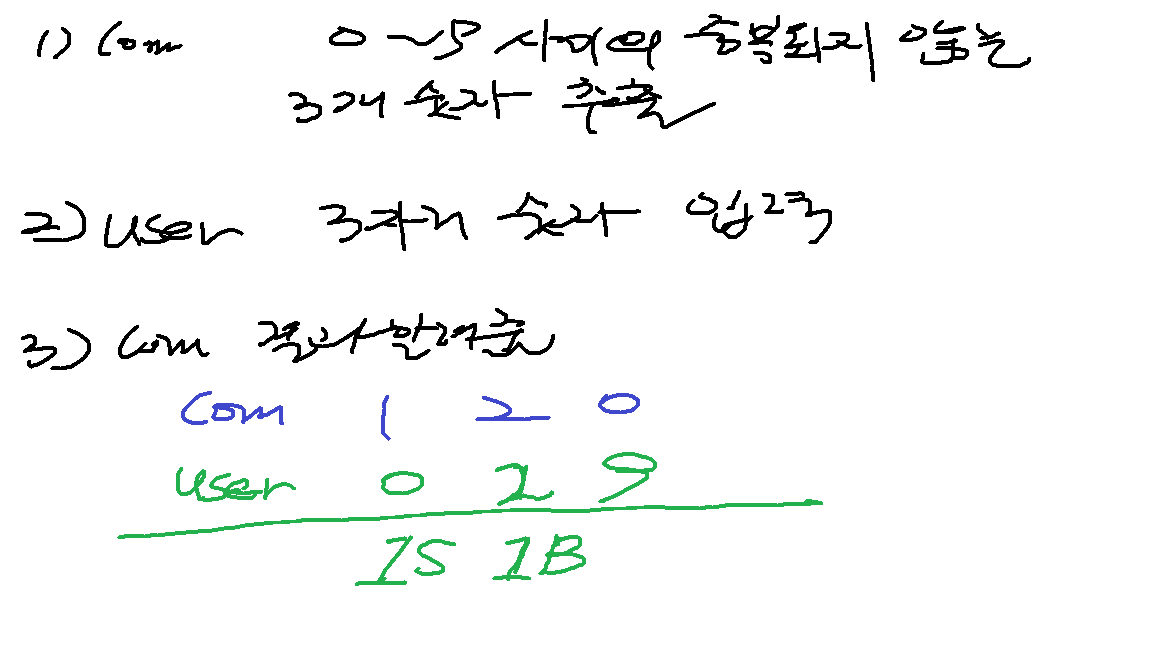 1) Com 0~9 사이의 중복되지 않는
3개 숫자 추출
2) user 3자리 숫자 입력
3) Com 결과알려줌
Com 1 2 0
user 0 2 9
1S 1B